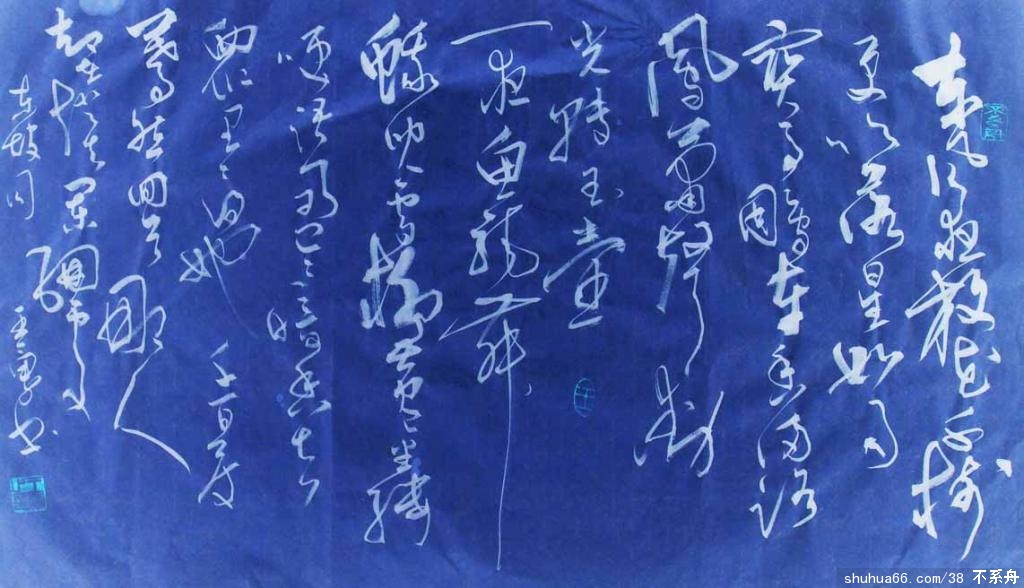 東風夜放花千樹
更吹落星如雨
寶馬雕車香滿路
鳳簫聲動
光轉玉壺
一夜魚龍舞
蛾兒雪柳黃金縷
笑語盈盈暗香去
眾里尋他千百度
驀然回首那人
却在燈火闌珊處
書
shuhua66.com/38 不系舟